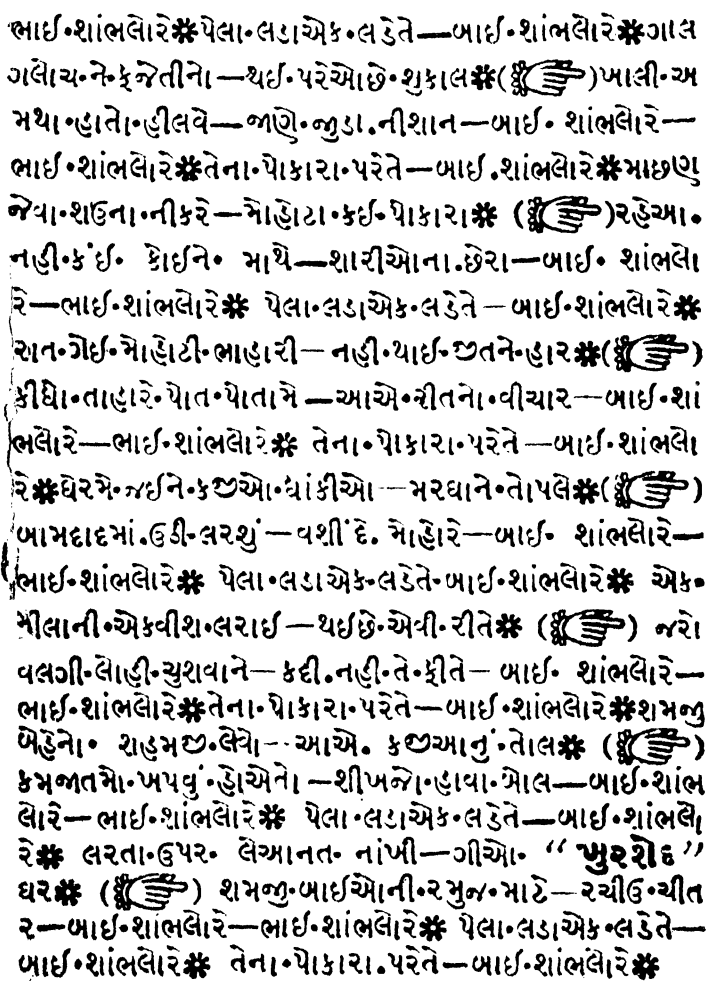 ભાઈ•શાંભલોરે✽પેલા•લડાઍક•લડેતે—બાઈ•શાંભલોરે✽ગાલ
ગલોચ•ને•ફજેતીનો—થઈ•પરેઓછે•શુકાલ✽(☞)ખાલી•અ
મથા•હાતો•હીલવે—જાણે•જુડા.નીશાન—બાઈ• શાંભલોરે—
ભાઈ•શાંભલોરે✽તેના•પોકારા•પરેતે—બાઈ.શાંભલોરે✽માછણ
જેવા•શઉના•નીકરે—મોહોટા•કઈ•પોકારા✽ (☞)રહેઆ•
નહી•કંઈ• કોઈને• માથે—શારીઓના.છેરા—બાઈ• શાંભલો
રે—ભાઈ•શાંભલોરે✽ પેલા•લડાઍક•લડેતે—બાઈ•શાંભલોરે✽
રાત•ગોઈ•મોહોટી•ભાહારી—નહી•થાઈ•જીતને•હાર✽(☞)
કીધો•તાહારે•પોત•પોતામે—આએ•રીતનો•વીચાર—બાઈ•શાં
ભલોરે—ભાઈ•શાંભલોરે✽ તેના•પોકારા•પરેતે—બાઈ•શાંભલો
રે✽ઘેરમે•જઈને•કજીઓ•ધાંકીઓ—મરઘાને•તોપલે✽(☞)
બામદાદમાં.ઉડી•લરશું—વશીંદે. મોહોરે—બાઈ• શાંભલોરે—
ભાઈ•શાંભલોરે✽ પેલા•લડાઍક•લડેતે•બાઈ•શાંભલોરે✽ એક•
મીલાની•એકવીશ•લરાઈ—થઈછે•એવી•રીતે✽ (☞) જરો
વલગી•લોહી•ચુશવાને—કદી.નહી•તે•ફીતે—બાઈ• શાંભલોરે—
ભાઈ•શાંભલોરે✽તેના•પોકારા•પરેતે—બાઈ•શાંભલોરે✽શમજુ
બોહેનો• શહમજી•લેવો—આએ. કજીઆનું•તોલ✽ (☞)
કમજાતમો•ખપવું•હોએતો—શીખજો•હાવા•બોલ—બાઈ•શાંભ
લોરે—ભાઈ•શાંભલોરે✽ પેલા•લડાઍક•લડેતે—બાઈ•શાંભલો
રે✽ લરતા•ઉપર• લેઆનત• નાંખી—ગીઓ• “ખુરશેદ”
ઘર✽ (☞) શમજુ•બાઈઓની•રમુજ•માટે—રચીઉ•ચીત
ર—બાઈ•શાંભલોરે—ભાઈ•શાંભલોરે✽ પેલા•લડાઍક•લડેતે—
બાઈ•શાંભલોરે✽ તેના•પોકારા.પરેતે—બાઈ•શાંભલોરે✽